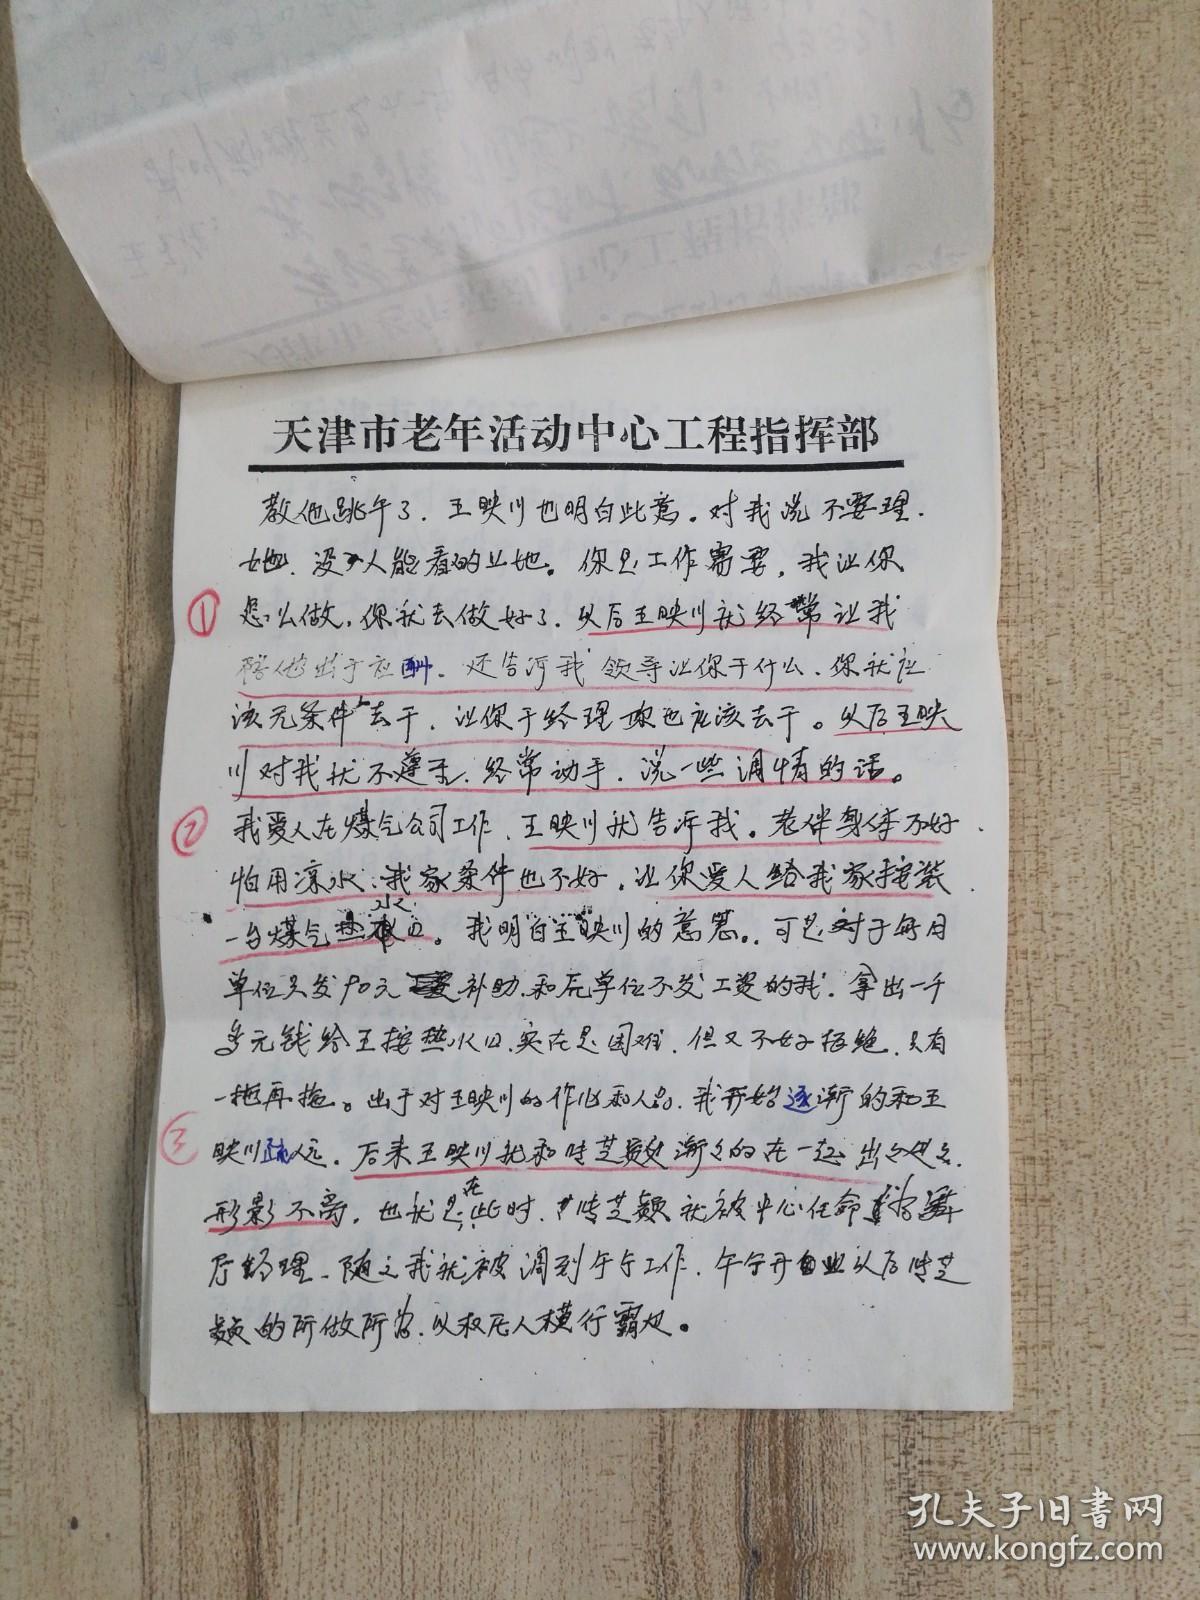 天津市老年活动中心工程指挥部
教他跳午了．王映川也明白此意。对我说不要理．
她．没人能看的上她。你是工作需要，我让你
① 怎么做，你就去做好了．以后王映川就经常让我
陪他出于应酬．还告诉我领导让你干什么．你就应
该无条件去干．让你干经理你也应该去干。以后王映
川对我就不尊重．经常动手．说一些调情的话。
② 我爱人在煤气公司工作．王映川就告诉我。老伴身体不好．
怕用凉水．我家条件也不好．让你爱人给我家接装
一台煤气热水。我明白王映川的意思．可是对于每月
单位只发90元补助．和原单位不发工资的我．拿出一千
多元钱给王接热水．实在是困难．但又不好拒绝．只有
一拖再拖。出于对王映川的作化和人品．我开始逐渐的和王
③ 映川疏远．后来王映川就和芝颖渐渐的在一起出出进进．
形影不离．也就是在此时．芝颖就被中心任命
厅经理．随之我就被调到午厅工作．午厅开业以后芝
颖的所做所为．以权压人横行霸道。
孔夫子旧书网
www.kongfz.com